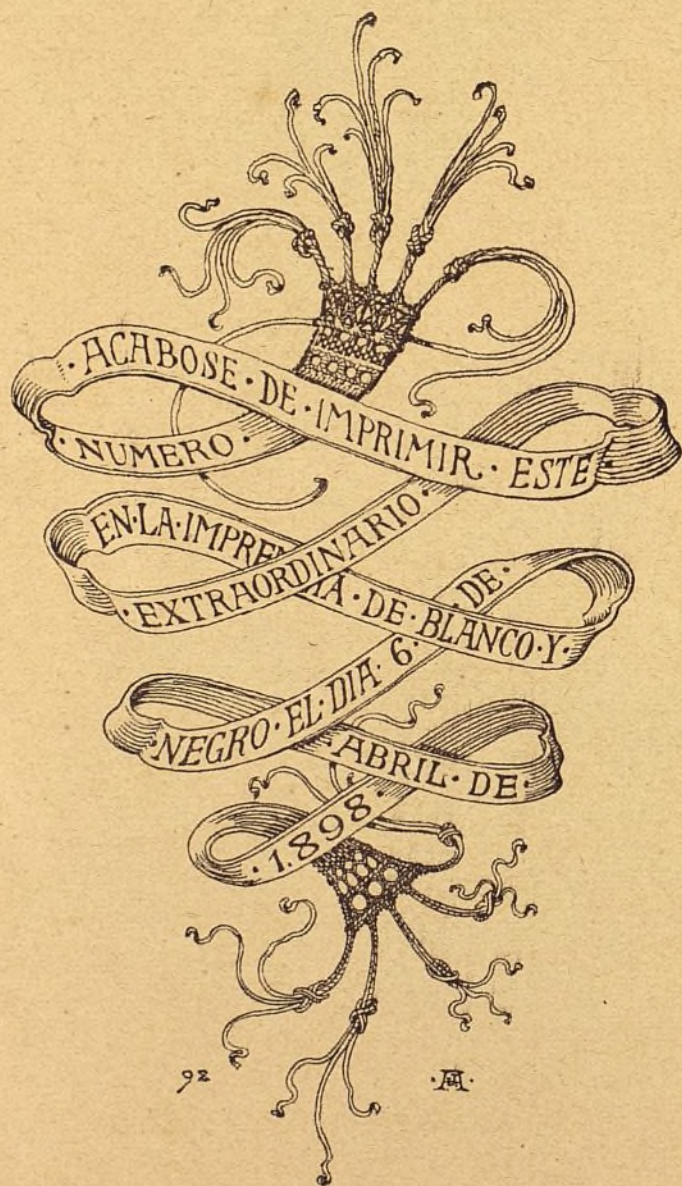 ·ACABOSE·DE·IMPRIMIR·ESTE·
·NUMERO·
·EXTRAORDINARIO·
EN·LA·IMPRENTA·DE·BLANCO·Y·
·NEGRO·EL·DIA·6·DE·
·ABRIL·DE·
·1.898·
92